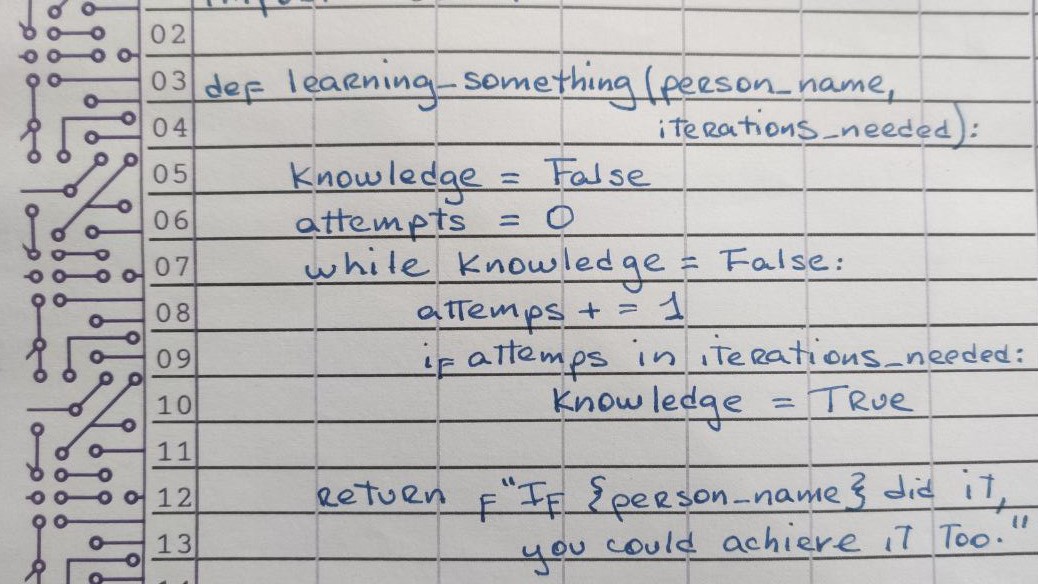 02
03 def learning_something(person_name,
04 iterations_needed):
05 knowledge = False
06 attempts = 0
07 while knowledge = False:
08 attemps + = 1
09 if attemps in iterations_needed:
10 knowledge = True
11
12 return f"If {person_name} did it,
13 you could achieve it too."